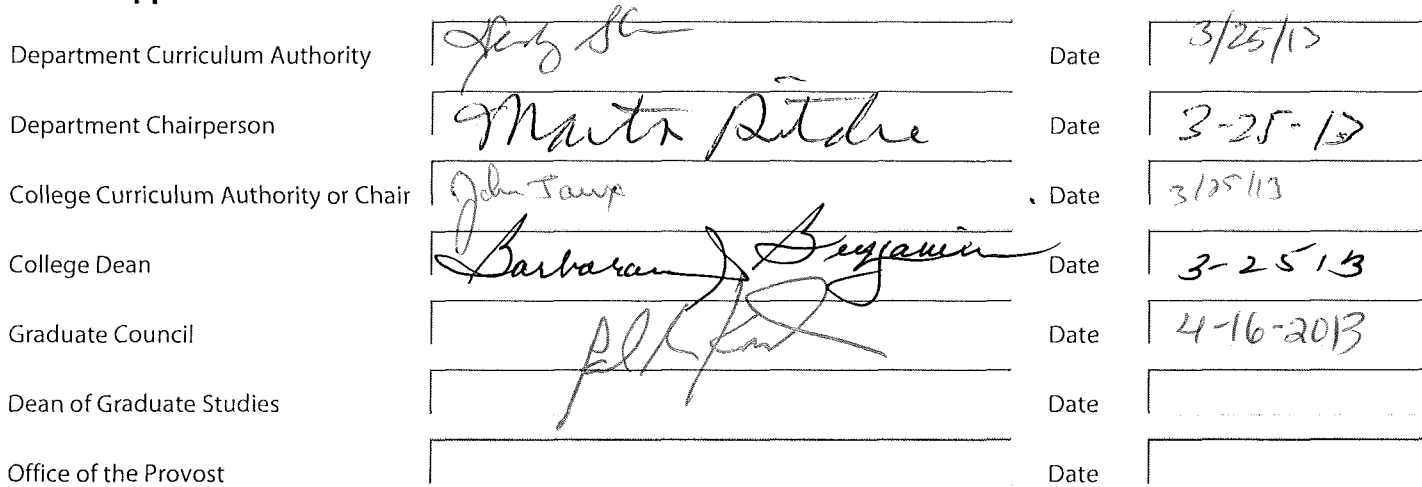 Department Curriculum Authority Date 3/25/13
Department Chairperson Martin Ritchie Date 3-25-13
College Curriculum Authority or Chair John Date 3/25/13
College Dean Barbara J Benjamin Date 3-25 13
Graduate Council Date 4-16-2013
Dean of Graduate Studies Date
Office of the Provost Date